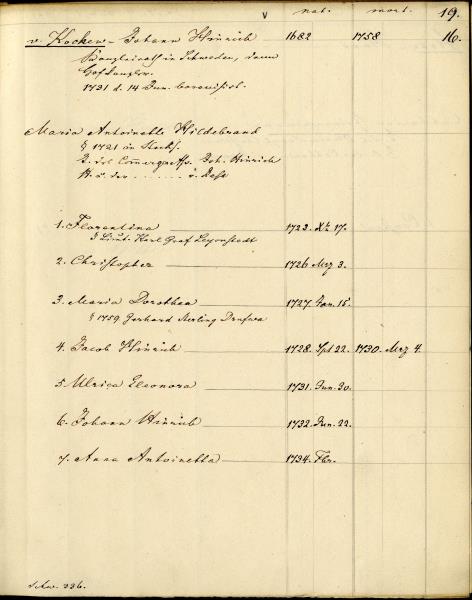 v nat. mort. 19.
v. Kocken - Johann Hinrich 1682 1758 16.
Kanzleirath in Schweden, dann
Hofkanzler.
1731 d. 14 Jun.
Maria Antoinette Hildebrand
§ 1721 in Stockh.
T. des Commerzraths Joh. Hinrich
H. u. der . . . . . . v.
1. Florentina 1723. Xbr 17.
§ Lieut. Karl Graf Leyonstedt
2. Christopher 1726 Mrz 3.
3. Maria Dorothea 1727. Jan. 15.
§ 1759. Gerhard Sterling
4. Jacob Hinrich 1728. Spt 22. 1730. Mrz 4.
5. Ulrica Eleonora 1731. Jun. 20.
6. Johann Hinrich 1732. Jun. 22.
7. Anna Antoinetta 1734. Fbr.
236.